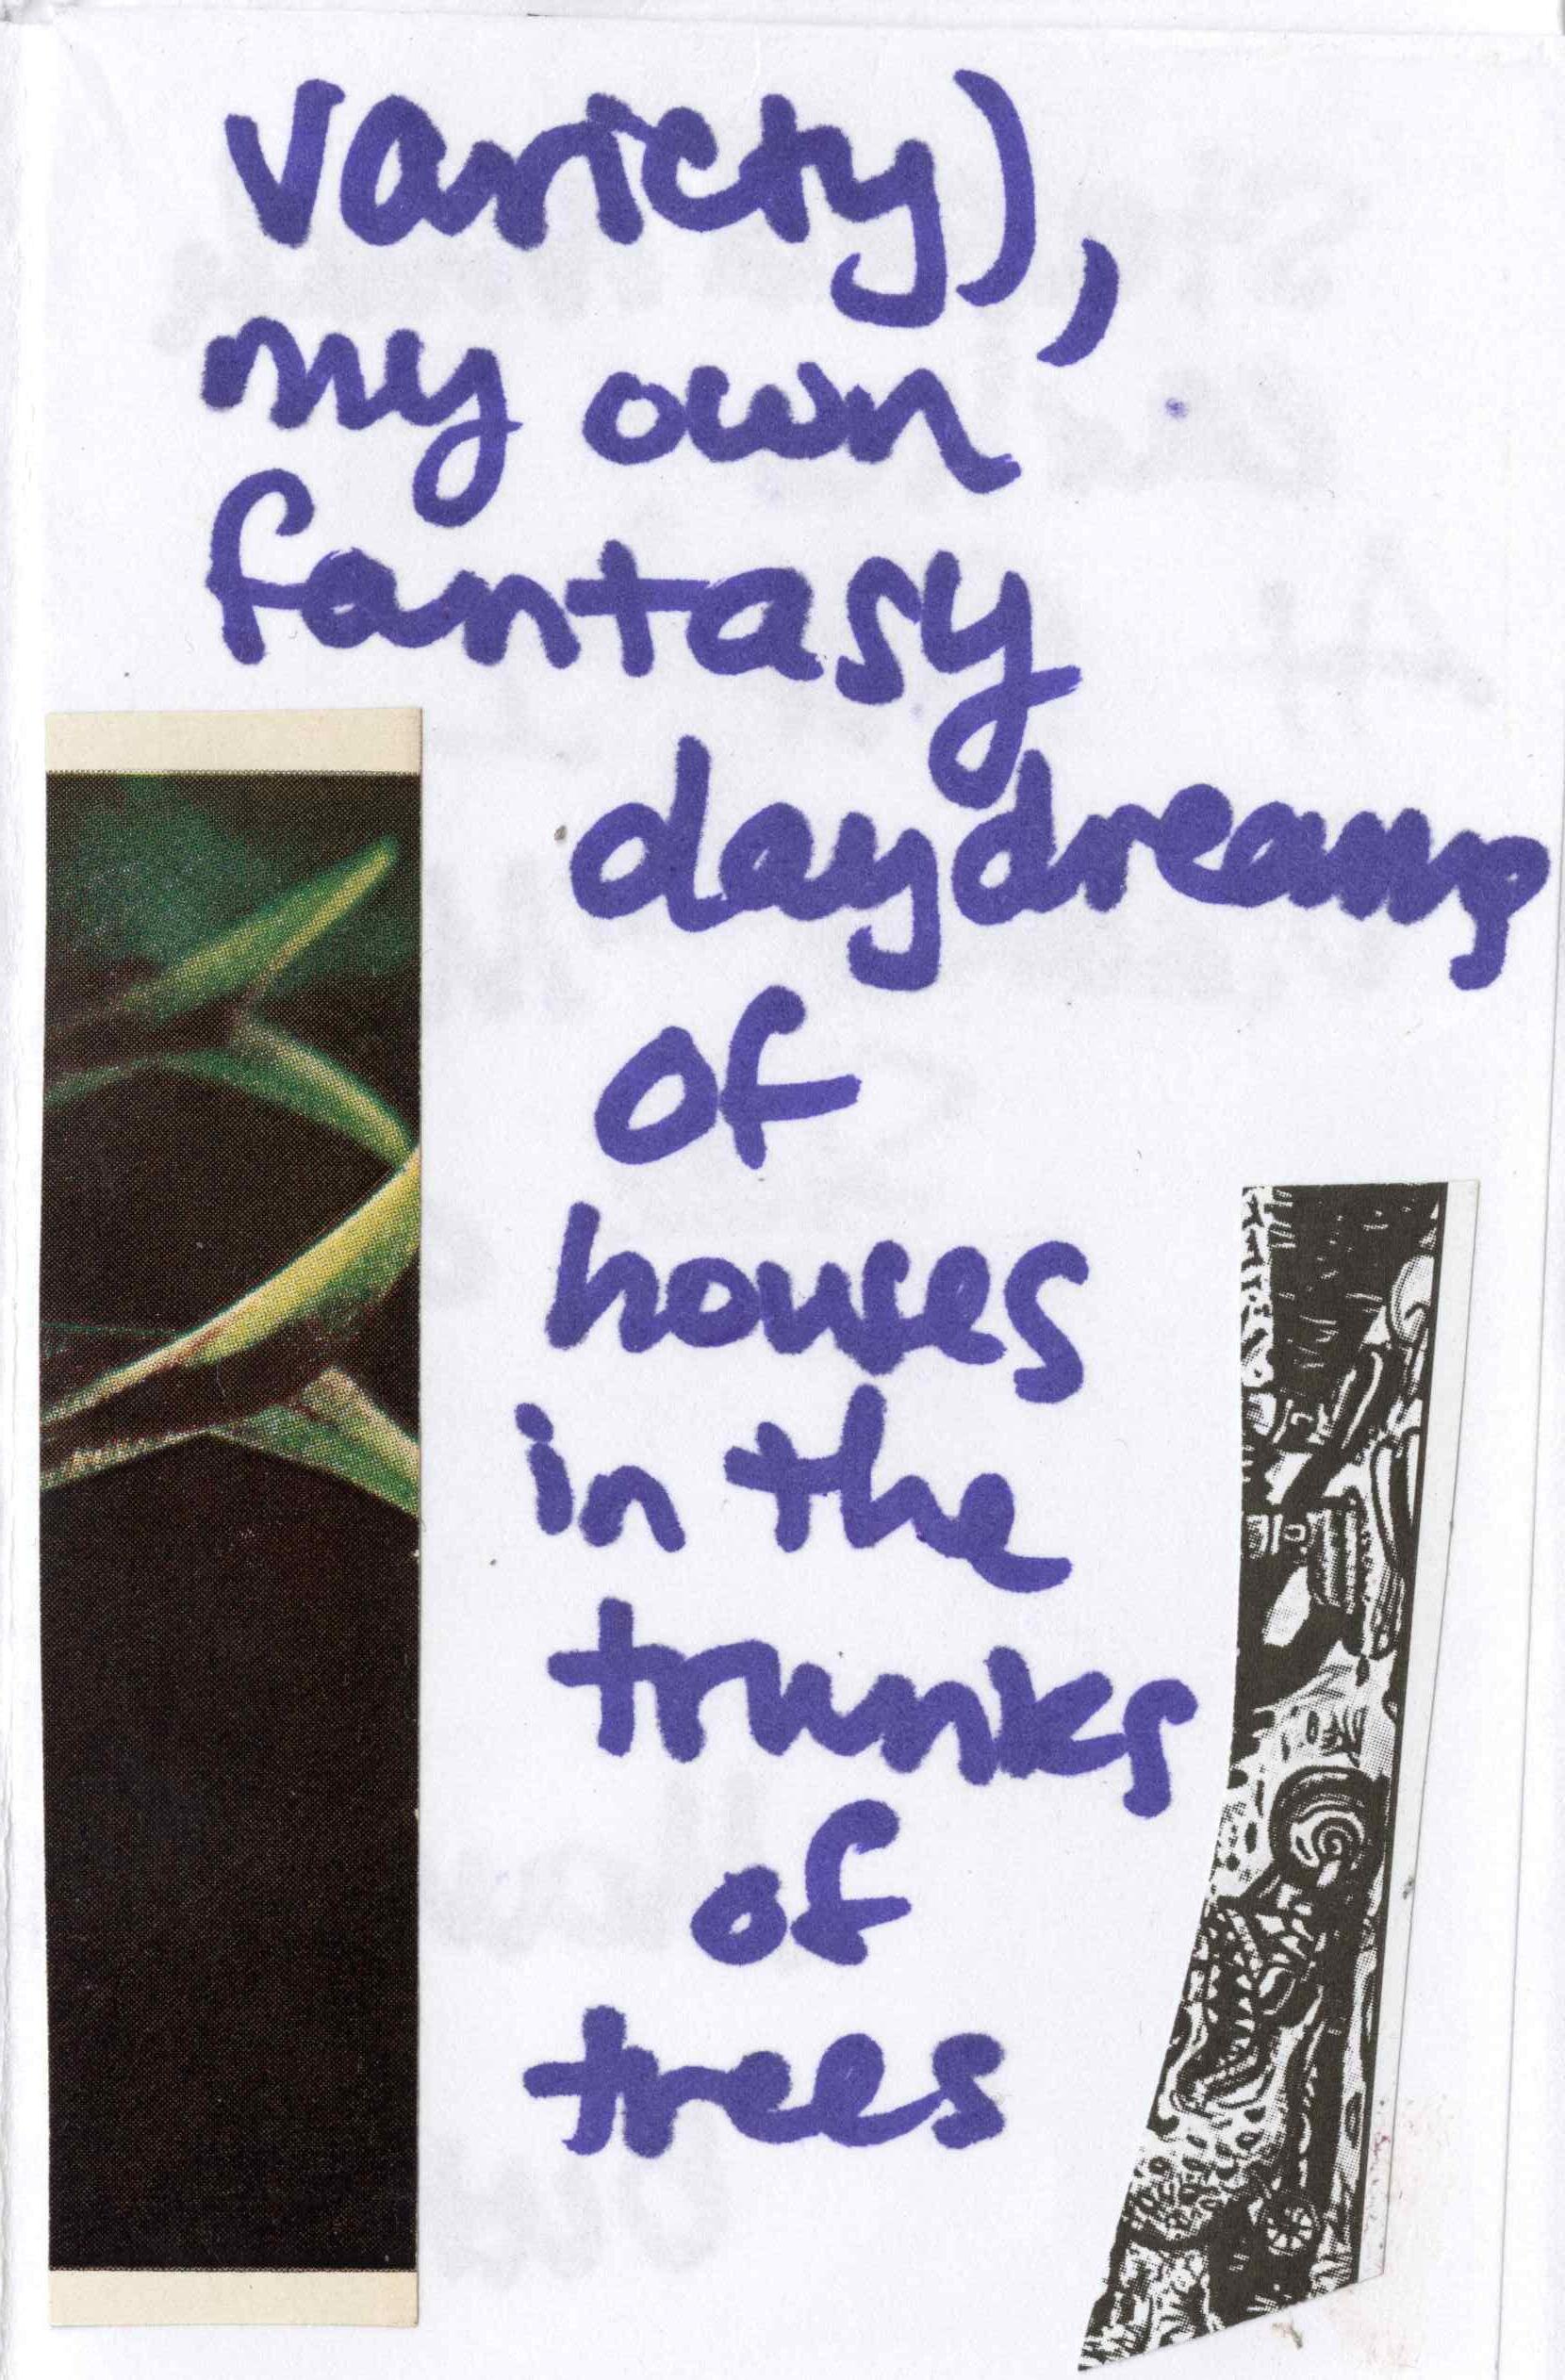 variety),
my own
fantasy
daydreams
of
houses
in the
trunks
of
trees